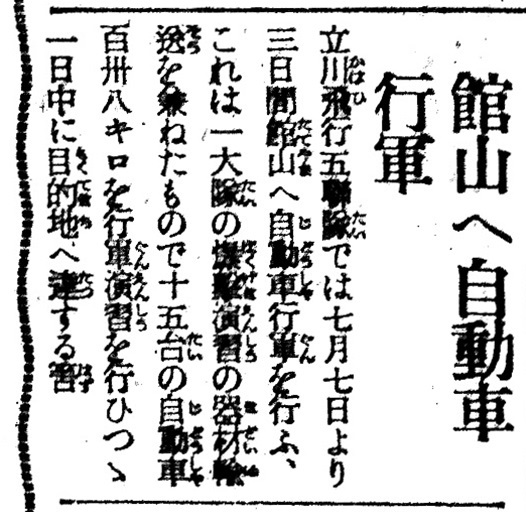 館山へ自動車
行軍
立川飛行五聯隊では七月七日より
三日間館山へ自動車行軍を行ふ、
これは一大隊の爆撃演習の器材輸
送を兼ねたもので十五台の自動車
百卅八キロを行軍演習を行ひつゝ
一日中に目的地へ達する筈